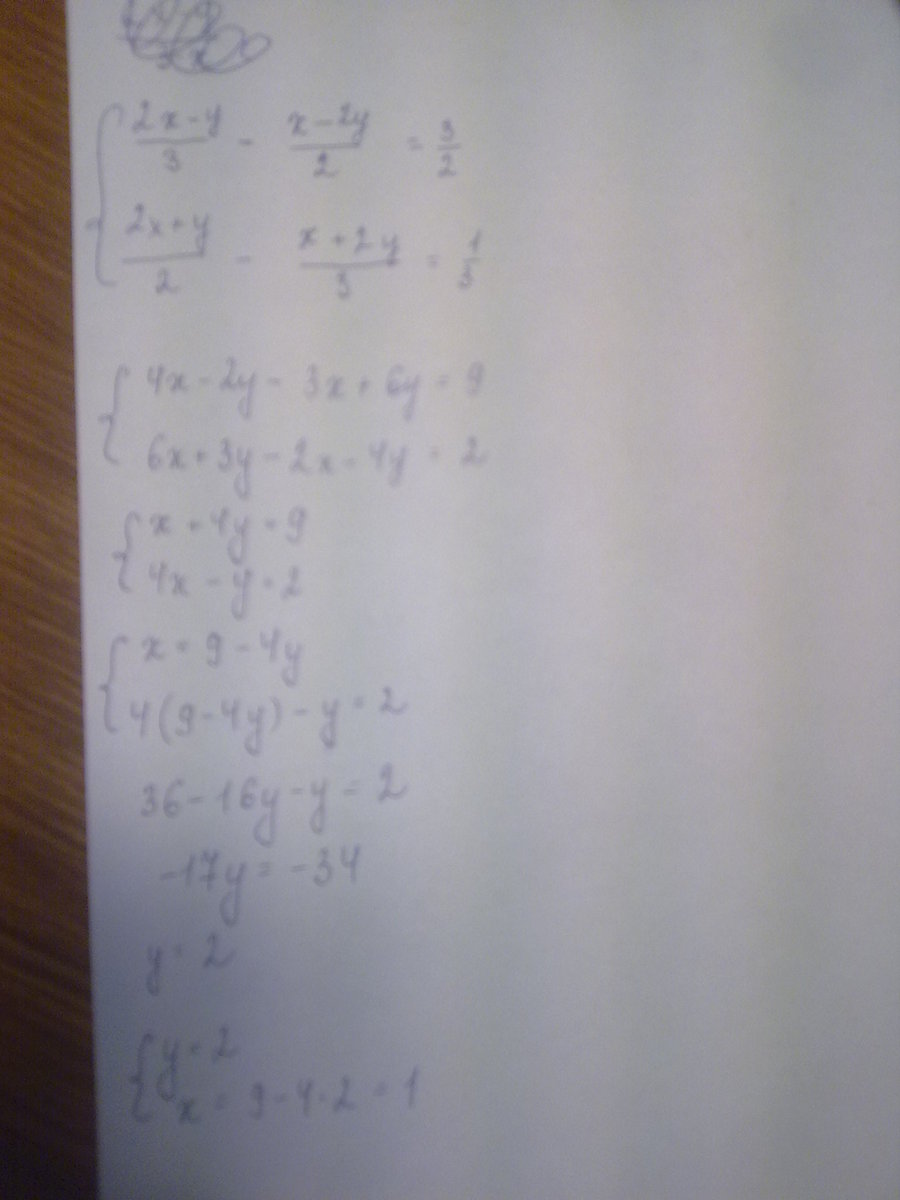 { (2x-y)/3 - (x-2y)/2 = 3/2
(2x+y)/2 - (x+2y)/3 = 1/3
{ 4x-2y-3x+6y=9
6x+3y-2x-4y=2
{ x+4y=9
4x-y=2
{ x=9-4y
4(9-4y)-y=2
36-16y-y=2
-17y=-34
y=2
{ y=2
x=9-4·2=1